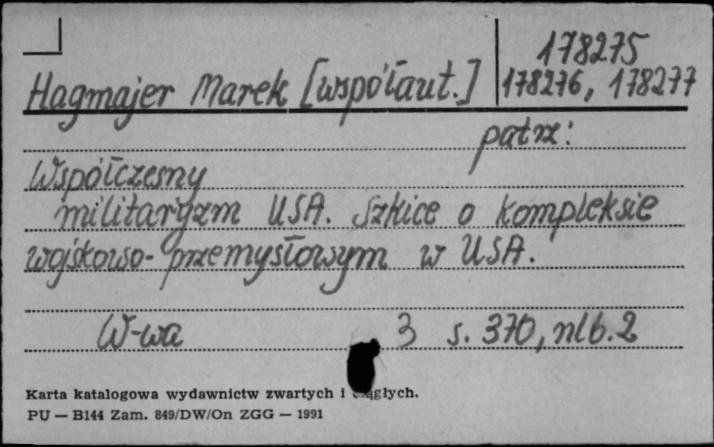 178275
Hagmajer Marek [współaut.] 178276, 178277
patrz:
Współczesny
militaryzm USA. Szkice o kompleksie
wojskowo-przemysłowym w USA.
W-wa 3 s. 370, nlb. 2
Karta katalogowa wydawnictw zwartych i ciągłych.
PU — B144 Zam. 849/DW/On ZGG — 1991